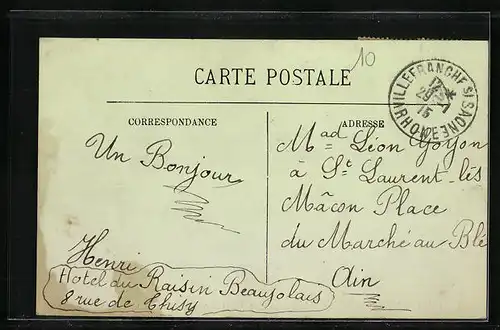 10
CARTE POSTALE
CORRESPONDANCE
ADRESSE
VILLEFRANCHE S/ SAONE
RHONE
Un Bonjour
Henri
Hotel du Raisin Beaujolais
8 rue de Thisy
Mad Léon Goyon
à St Laurent-lès
Mâcon Place
du Marché au Blé
Ain